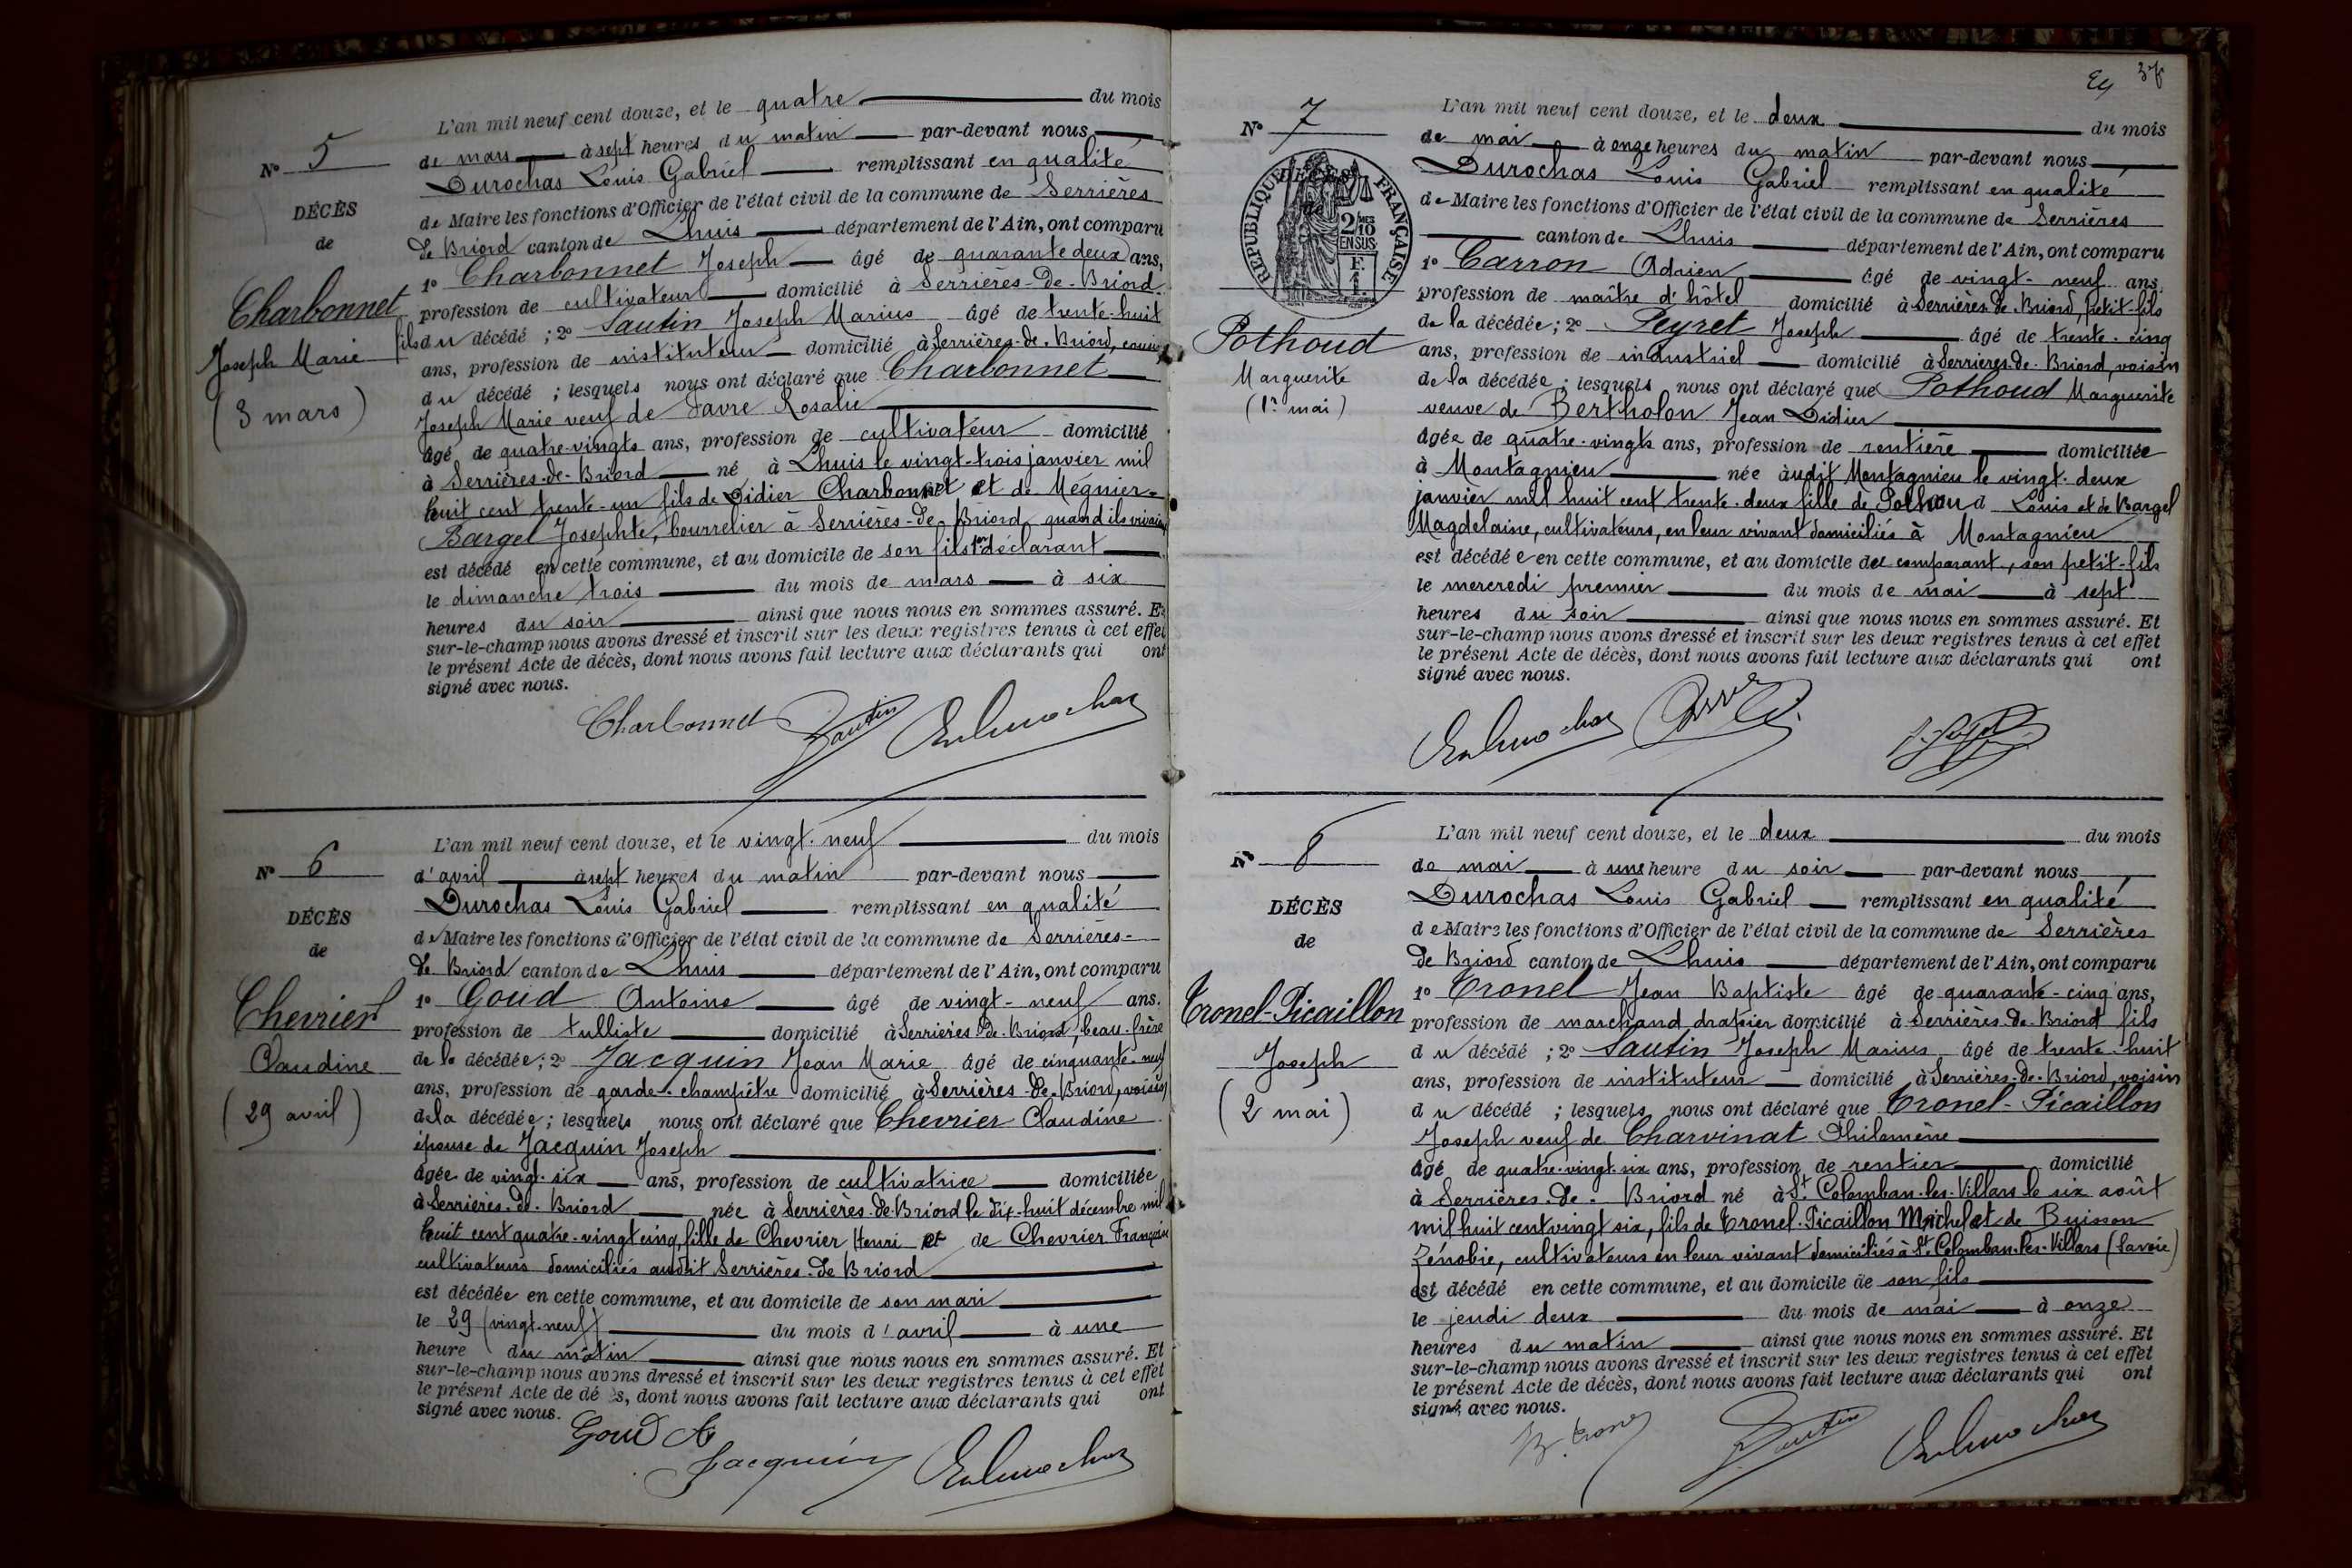 L'an mil neuf cent douze, et le quatre du mois
N° 5
de mars à sept heures du matin par-devant nous
Durochas Louis Gabriel remplissant en qualité
DÉCÈS
de Maire les fonctions d'Officier de l'état civil de la commune de Serrières
de
de Briord canton de Lhuis département de l'Ain, ont comparu
1° Charbonnet Joseph âgé de quarante deux ans,
Charbonnet
profession de cultivateur domicilié à Serrières-de-Briord.
Joseph Marie
fils du décédé ; 2° Sautin Joseph Marius âgé de trente-huit
ans, profession de instituteur domicilié à Serrières-de-Briord,
(3 mars)
du décédé ; lesquels nous ont déclaré que Charbonnet
Joseph Marie veuf de Favre Rosalie
âgé de quatre-vingts ans, profession de cultivateur domicilié
à Serrières-de-Briord né à Lhuis le vingt-trois janvier mil
huit cent trente-un fils de Didier Charbonnet et de Mégnier-
Bargel Josephte, bourrelier à Serrières-de Briord quand ils vivaient
est décédé en cette commune, et au domicile de son fils 1er déclarant
le dimanche trois du mois de mars à six
heures du soir ainsi que nous nous en sommes assuré. Et
sur-le-champ nous avons dressé et inscrit sur les deux registres tenus à cet effet
le présent Acte de décès, dont nous avons fait lecture aux déclarants qui ont
signé avec nous.
Charbonnet Sautin Durochas
L'an mil neuf cent douze, et le vingt-neuf du mois
N° 6
d'avril à sept heures du matin par-devant nous
Durochas Louis Gabriel remplissant en qualité
DÉCÈS
de Maire les fonctions d'Officier de l'état civil de la commune de Serrières-
de
de Briord canton de Lhuis département de l'Ain, ont comparu
1° Goud Antoine âgé de vingt-neuf ans.
Chevrier
profession de tulliste domicilié à Serrières-de-Briord, beau-frère
Claudine
de la décédée ; 2° Jacquin Jean Marie âgé de cinquante-neuf
ans, profession de garde-champêtre domicilié à Serrières-de-Briord, voisin
(29 avril)
de la décédée ; lesquels nous ont déclaré que Chevrier Claudine
épouse de Jacquin Joseph
âgée de vingt-six ans, profession de cultivatrice domiciliée
à Serrières-de-Briord née à Serrières-de-Briord le dix-huit décembre mil
huit cent quatre-vingt cinq, fille de Chevrier Henri et de Chevrier Françoise
cultivateurs domiciliés audit Serrières-de Briord
est décédée en cette commune, et au domicile de son mari
le 29 (vingt-neuf) du mois d'avril à une
heure du matin ainsi que nous nous en sommes assuré. Et
sur-le-champ nous avons dressé et inscrit sur les deux registres tenus à cet effet
le présent Acte de décès, dont nous avons fait lecture aux déclarants qui ont
signé avec nous.
Goud A
Jacquin Durochas
37
L'an mil neuf cent douze, et le deux du mois
N° 7
de mai à onze heures du matin par-devant nous
Durochas Louis Gabriel remplissant en qualité
DÉCÈS
RÉPUBLIQUE FRANÇAISE
2/10 EN SUS
F. 1.
de Maire les fonctions d'Officier de l'état civil de la commune de Serrières
canton de Lhuis département de l'Ain, ont comparu
1° Carron Adrien âgé de vingt-neuf ans.
profession de maître d'hôtel domicilié à Serrières-de-Briord, petit-fils
Pothoud
de la décédée ; 2° Peyret Joseph âgé de trente-cinq
ans, profession de industriel domicilié à Serrières-de-Briord, voisin
Marguerite
de la décédée ; lesquels nous ont déclaré que Pothoud Marguerite
(1er mai)
veuve de Bertholon Jean Didier
âgée de quatre-vingts ans, profession de rentière domiciliée
à Montagnieu née audit Montagnieu le vingt-deux
janvier mil huit cent trente-deux fille de Pothoud Louis et de Bargel
Magdelaine, cultivateurs, en leur vivant domiciliés à Montagnieu
est décédée en cette commune, et au domicile du comparant, son petit-fils
le mercredi premier du mois de mai à sept
heures du soir ainsi que nous nous en sommes assuré. Et
sur-le-champ nous avons dressé et inscrit sur les deux registres tenus à cet effet
le présent Acte de décès, dont nous avons fait lecture aux déclarants qui ont
signé avec nous.
Durochas
L'an mil neuf cent douze, et le deux du mois
N° 8
de mai à une heure du soir par-devant nous
Durochas Louis Gabriel remplissant en qualité
DÉCÈS
de Maire les fonctions d'Officier de l'état civil de la commune de Serrières
de
de Briord canton de Lhuis département de l'Ain, ont comparu
1° Tronel Jean Baptiste âgé de quarante-cinq ans,
Tronel-Picaillon
profession de marchand drapier domicilié à Serrières-de-Briord fils
Joseph
du décédé ; 2° Sautin Joseph Marius âgé de trente-huit
ans, profession de instituteur domicilié à Serrières-de-Briord, voisin
(2 mai)
du décédé ; lesquels nous ont déclaré que Tronel-Picaillon
Joseph veuf de Charvinat Philomène
âgé de quatre-vingt-six ans, profession de rentier domicilié
à Serrières-de-Briord né à St Colomban-les-Villars le six août
mil huit cent vingt six, fils de Tronel-Picaillon Michel et de Buisson
Zénobie, cultivateurs en leur vivant domiciliés à St Colomban-les-Villars (Savoie)
est décédé en cette commune, et au domicile de son fils
le jeudi deux du mois de mai à onze
heures du matin ainsi que nous nous en sommes assuré. Et
sur-le-champ nous avons dressé et inscrit sur les deux registres tenus à cet effet
le présent Acte de décès, dont nous avons fait lecture aux déclarants qui ont
signé avec nous.
B. Tronel Sautin Durochas